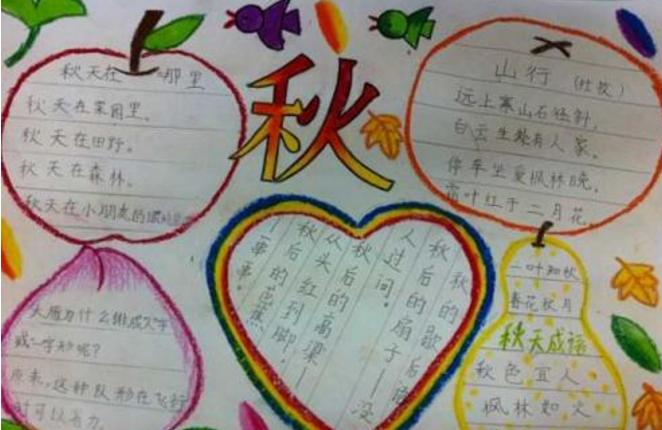 秋天在哪里
秋天在菜园里。
秋天在田野。
秋天在森林。
秋天在小朋友的
秋
山行 (杜牧)
远上寒山石径斜,
白云生处有人家,
停车坐爱枫林晚,
霜叶红于二月花。
大雁为什么排成人字
或一字形呢?
原来,这种队形在飞行
时可以省力。
秋的歇后语
秋后的扇子—没
人过问。
秋后的高梁—
从头红到脚。
秋后的芭蕉
一串串。
一叶知秋
春花秋月
秋天成语
秋色宜人
枫林如火